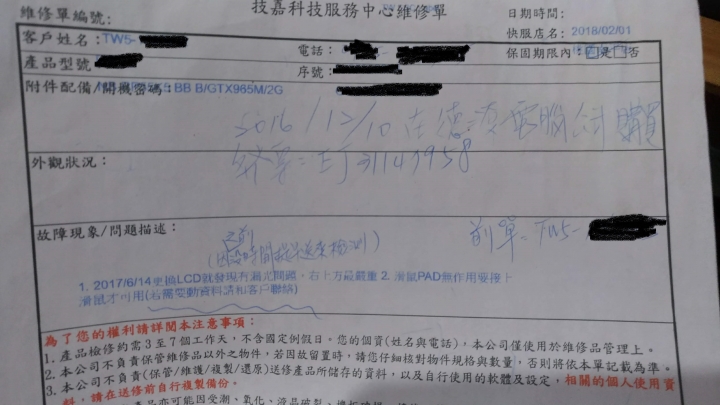 技嘉科技服務中心維修單
維修單編號:
日期時間:
客戶姓名:TW5-
電話:
快服店名: 2018/02/01
保固期限內:☑是□否
產品型號
序號:
附件配備/開機密碼: BB B/GTX965M/2G
2016/12/10在德 電腦公司購買
發票:EJ31143958
外觀狀況:
故障現象/問題描述:
之前
(因為時間 送來檢測)
前單:TW5-
1. 2017/6/14更換LCD就發現有漏光問題、右上方最嚴重 2. 滑鼠PAD無作用要接上
滑鼠才可用(若需要動資料請和客戶聯絡)
為了您的權利請詳閱本注意事項:
1. 產品檢修約需3至7個工作天,不含國定例假日。您的個資(姓名與電話),本公司僅使用於維修品管理上。
2. 本公司不負責保管維修品以外之物件,若因故留置時,請您仔細核對物件規格與數量,否則將依本單記載為準。
3. 本公司不負責(保管/維護/複製/還原)送修產品所儲存的資料,以及自行使用的軟體及設定,相關的個人使用資
料,請在送修前自行複製備份。